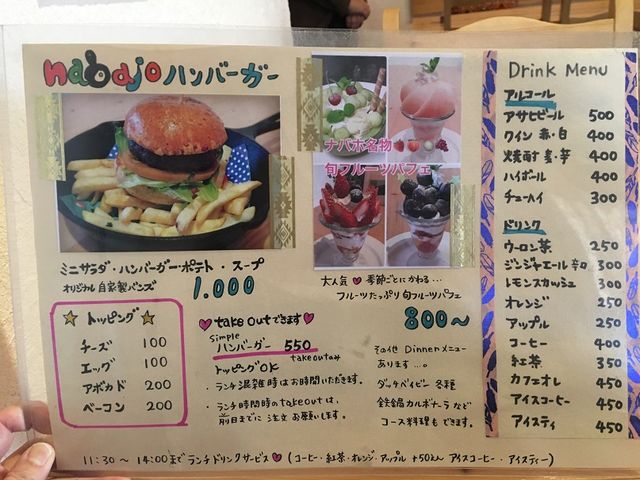 nabajoハンバーガー
ミニサラダ・ハンバーガー・ポテト・スープ
オリジナル自家製バンズ 1.000
☆トッピング☆
チーズ 100
エッグ 100
アボカド 200
ベーコン 200
♥take outできます♥
simple
ハンバーガー 550
takeoutのみ
トッピングOK
・ランチ混雑時はお時間いただきます。
・ランチ時間時のtakeoutは、
前日までに注文お願いします。
ナバホ名物
旬フルーツパフェ
大人気♥季節ごとにかわる…
フルーツたっぷり旬フルーツパフェ
800〜
その他 Dinnerメニュー
あります…。
ダッチベイビー各種
鉄鍋カルボナーラなど
コース料理もできます。
Drink Menu
アルコール
アサヒビール 500
ワイン 赤・白 400
焼酎 麦・芋 400
ハイボール 400
チューハイ 300
ドリンク
ウーロン茶 250
ジンジャエール辛口 300
レモンスカッシュ 300
オレンジ 250
アップル 250
コーヒー 400
紅茶 350
カフェオレ 450
アイスコーヒー 450
アイスティ 450
11:30〜14:00までランチドリンクサービス♥(コーヒー・紅茶・オレンジ・アップル +50えん アイスコーヒー・アイスティー)